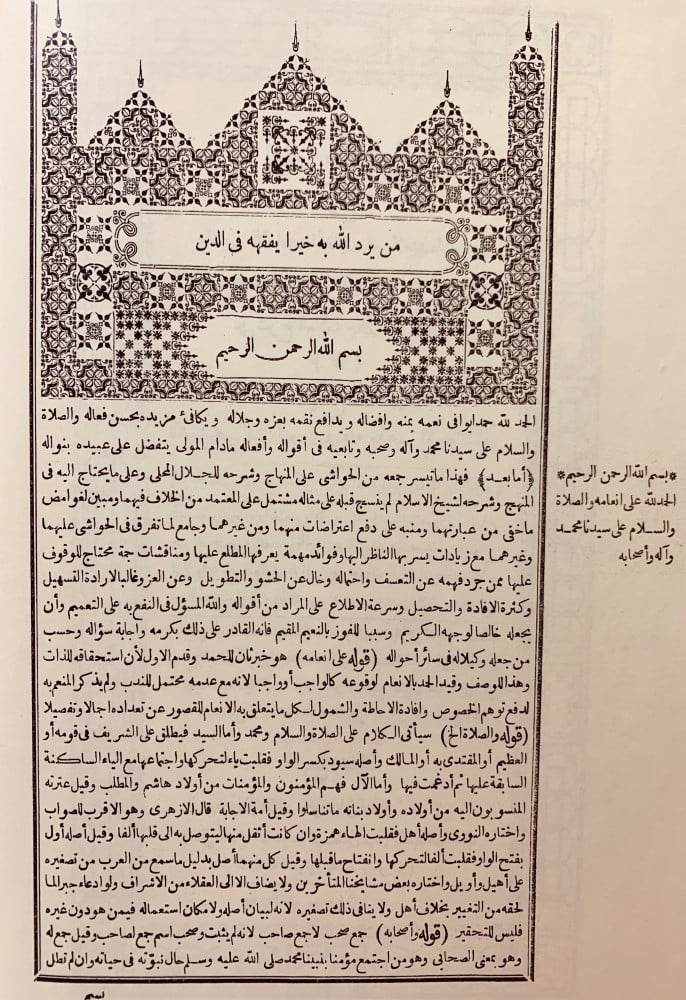 من يرد الله به خيرا يفقهه فى الدين
بسم الله الرحمن الرحيم
الحمد لله حمدا يوافى نعمه بمنه وافضاله ويدافع نقمه بعزه وجلاله ويكافئ مزيده بحسن فعاله والصلاة
والسلام على سيدنا محمد وآله وصحبه وتابعيه فى أقواله وأفعاله مادام المولى يتفضل على عبيده بنواله
﴿أما بعد﴾ فهذا ما تيسر جمعه من الحواشى على المنهاج وشرحه للجلال المحلى وعلى ما يحتاج اليه فى
المنهج وشرحه لشيخ الاسلام لم ينسج قبله على مثاله مشتمل على المعتمد من الخلاف فيهما ومبين لغوامض
ماخفى من عبارتهما ومنبه على دفع اعتراضات منهما ومن غيرهما وجامع لما تفرق فى الحواشى عليهما
وغيرهما مع زيادات يسر بها الناظر اليها وفوائد مهمة يعرفها المطلع عليها ومناقشات جمة محتاج للوقوف
عليها ممن جرد فهمه عن التعسف واحتماله وخال عن الحشو والتطويل وعن العزو غالبا لارادة التسهيل
وكثرة الافادة والتحصيل وسرعة الاطلاع على المراد من أقواله والله المسؤل فى النفع به على التعميم وأن
يجعله خالصا لوجهه الكريم وسببا للفوز بالنعيم المقيم فانه القادر على ذلك بكرمه واجابة سؤاله وحسب
من جعله وكيلا له فى سائر أحواله (قوله على انعامه) هو خبر ثان للحمد وقدم الاول لأن استحقاقه للذات
وهذا للوصف وقيد الحمد بالانعام لوقوعه كالواجب أو واجبا لانه مع عدمه محتمل للندب ولم يذكر المنعم به
لدفع توهم الخصوص وافادة الاحاطة والشمول لكل ما يتعلق به الانعام للقصور عن تعداده اجمالا وتفصيلا
(قوله والصلاة الخ) سيأتى الكلام على الصلاة والسلام ومحمد وأما السيد فيطلق على الشريف فى قومه أو
العظيم أو المقتدى به أو المالك وأصله سيود بكسر الواو فقلبت ياء لتحركها واجتماعها مع الياء الساكنة
السابقة عليها ثم أدغمت فيها وأما الآل فهم المؤمنون والمؤمنات من أولاد هاشم والمطلب وقيل عترته
المنسوبون اليه من أولاده وأولاد بناته ما تناسلوا وقيل أمة الاجابة قال الازهرى وهو الاقرب للصواب
واختاره النووى وأصله أهل فقلبت الهاء همزة وان كانت أثقل منها ليتوصل به الى قلبها ألفا وقيل أصله أول
بفتح الواو فقلبت ألفا لتحركها وانفتاح ماقبلها وقيل كل منهما أصل بدليل ما سمع من العرب من تصغيره
على أهيل وأويل واختاره بعض مشايخنا المتأخرين ولا يضاف الا الى العقلاء من الاشراف ولو ادعاء جبرا لما
لحقه من التغيير بخلاف أهل ولا ينافى ذلك تصغيره لانه لبيان أصله ولامكان استعماله فيمن هو دون غيره
فليس للتحقير (قوله وأصحابه) جمع صحب لا جمع صاحب لانه لم يثبت وصحب اسم جمع لصاحب وقيل جمع له
وهو بمعنى الصحابى وهو من اجتمع مؤمنا بنبينا محمد صلى الله عليه وسلم حال نبوته فى حياته وان لم تطل
*بسم الله الرحمن الرحيم*
الحمد لله على انعامه والصلاة
والسلام على سيدنا محمد
وآله وأصحابه